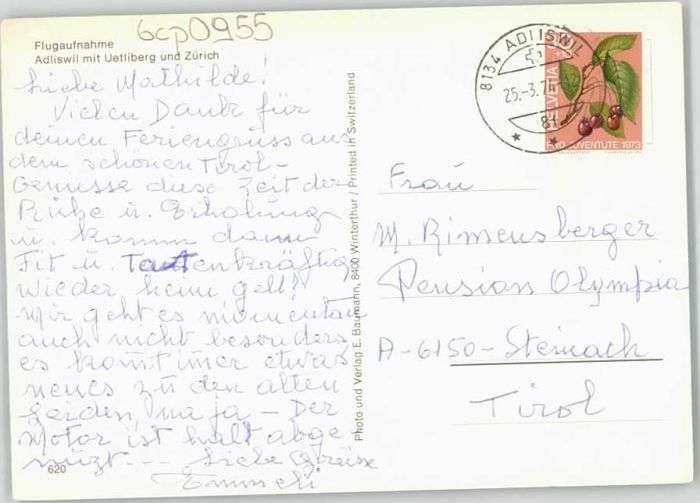 6cp0955
Flugaufnahme
Adliswil mit Uetliberg und Zürich
Liebe Mathilde!
Vielen Dank für
deinen Feriengruss aus
dem schönen Tirol-
Geniesse diese Zeit der
Ruhe u. Erholung
u. komm dann
Fit u. Tatenkräftig
wieder heim gell!
Mir geht es momentan
auch nicht besonders
es komt imer etwas
neues zu den alten
Leiden, na ja - Der
Motor ist halt abge-
nüzt... Liebe Grüsse
620
Photo und Verlag E. Baumann, 8400 Winterthur / Printed in Switzerland
8134 ADLISWIL
25.-3.74
HELVETIA
PRO JUVENTUTE 1973
Frau
M. Rimensberger
Pension Olympia
A-6150-Steinach
Tirol